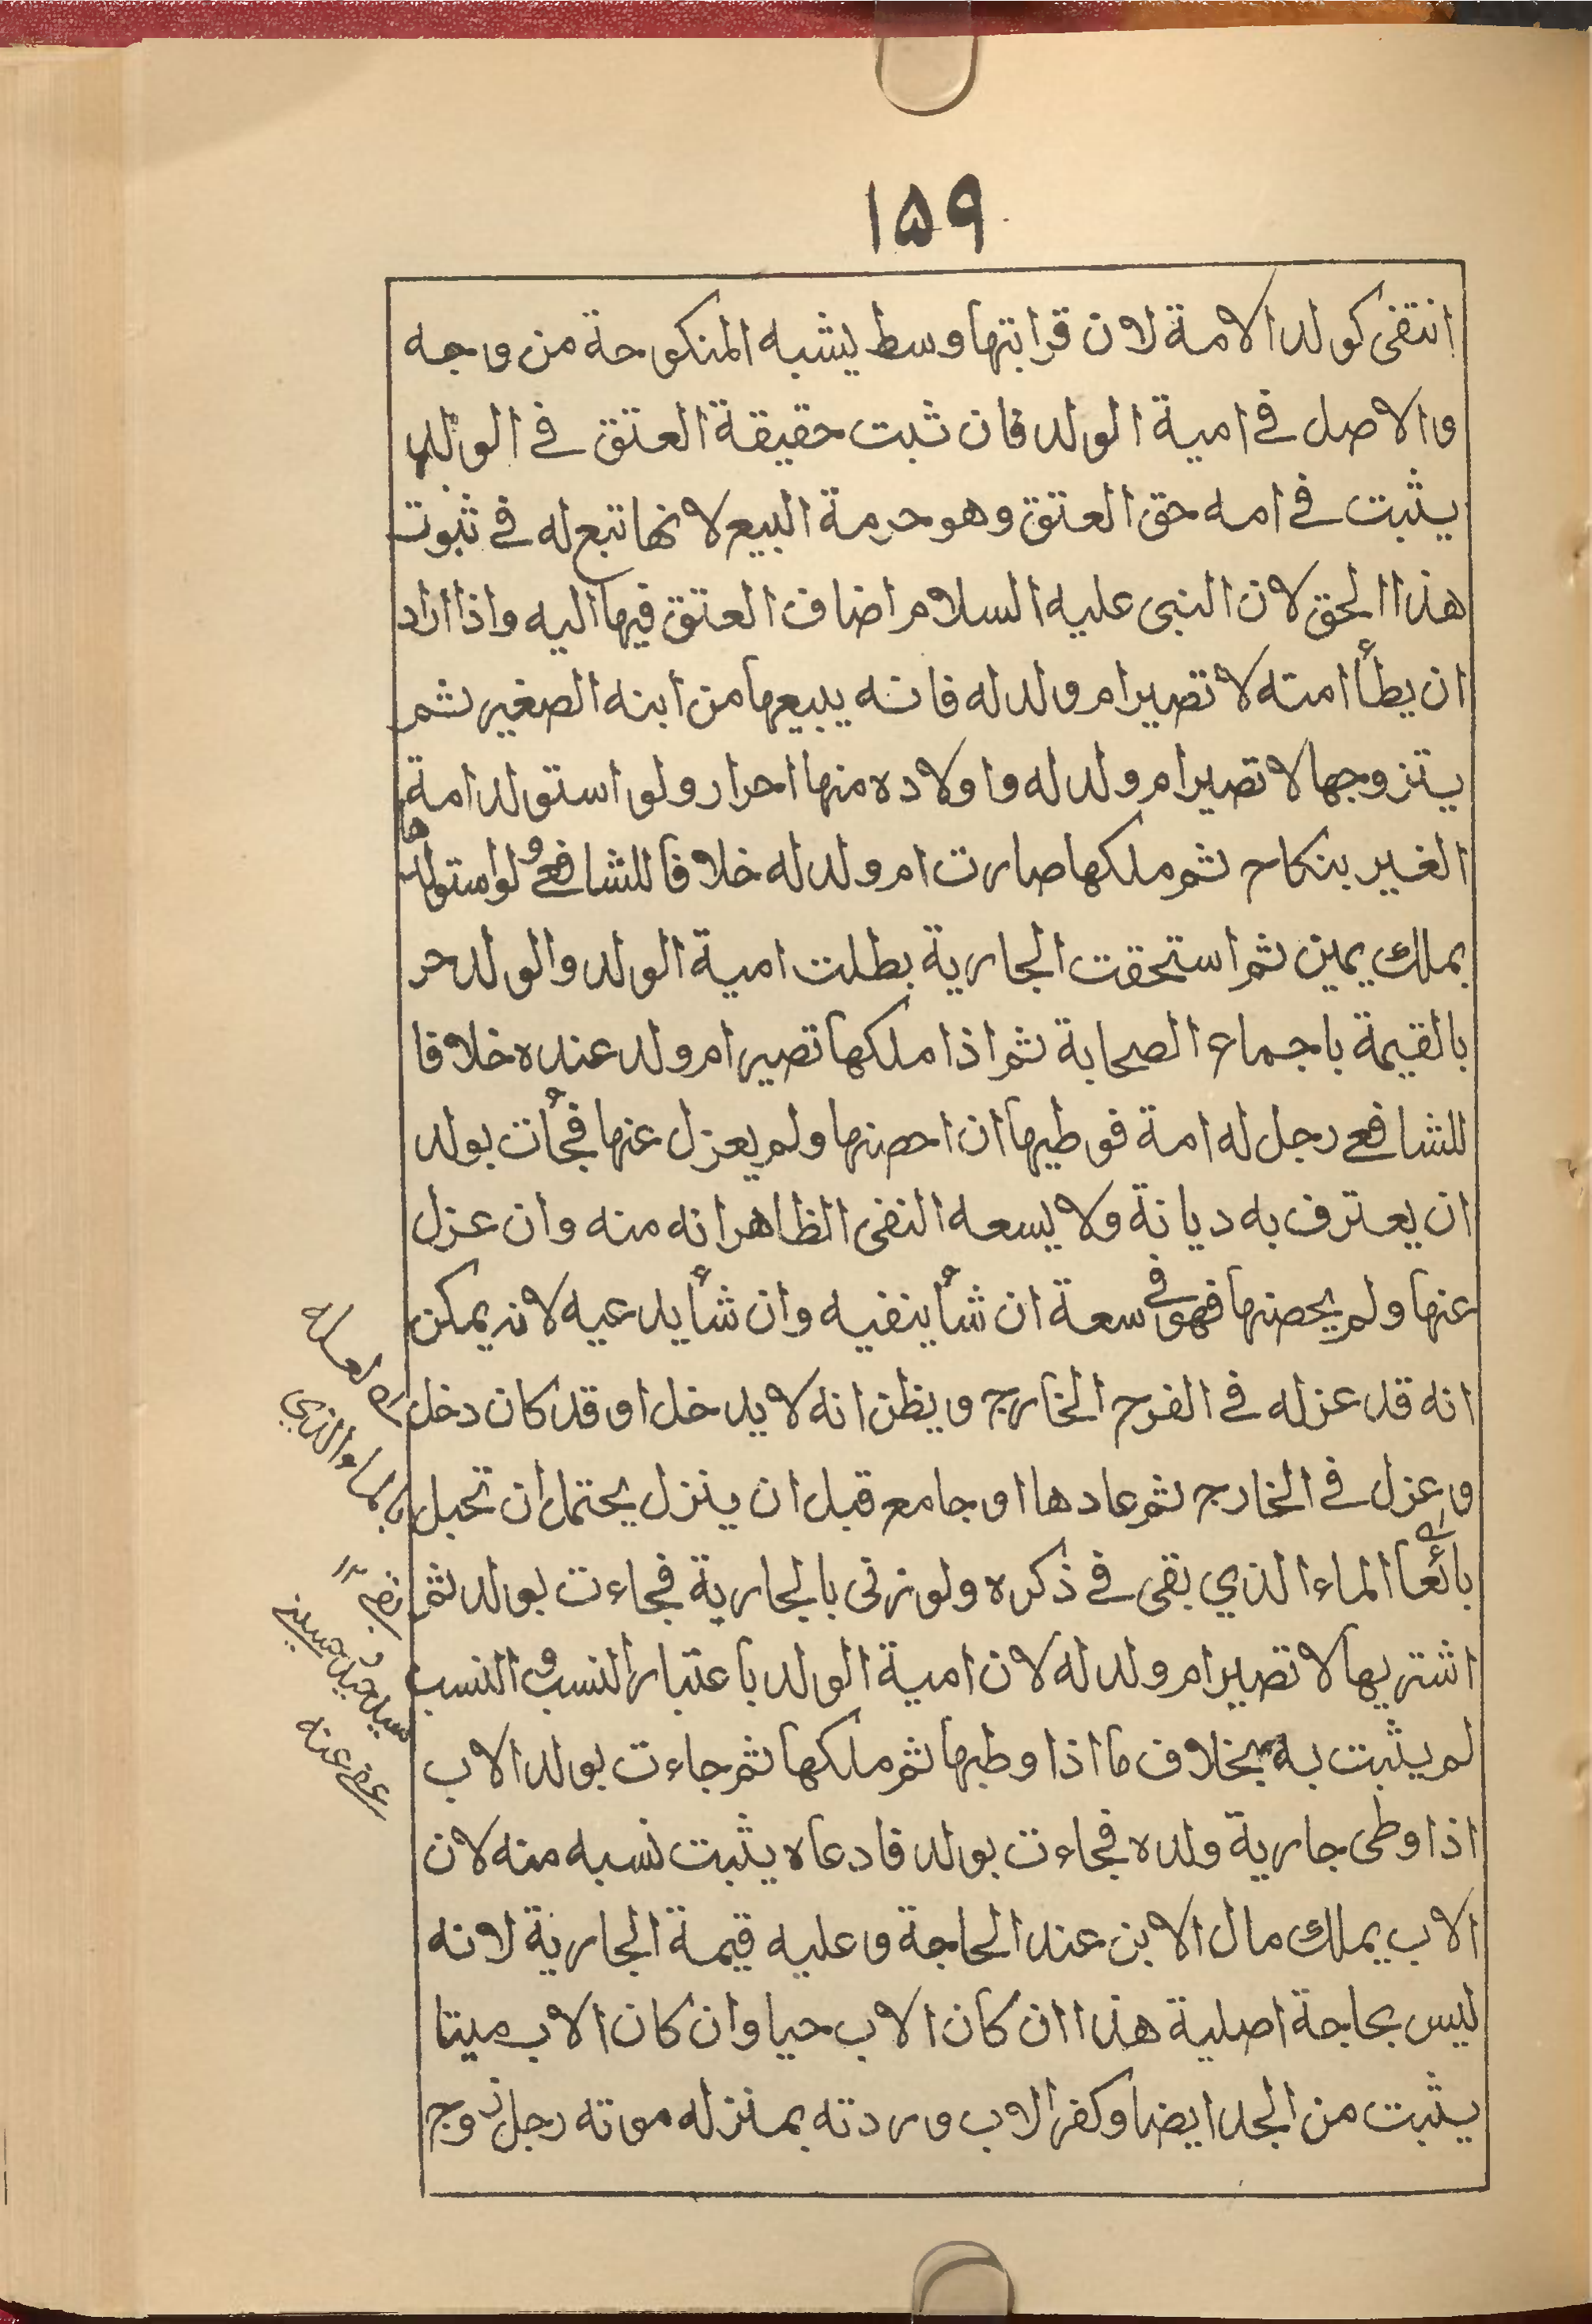 ۱۵۹
انتفى كولد الامة لان قرابتها وسط يشبه المنكوحة من وجه
والاصل فى امية الولد فان ثبت حقيقة العتق فى الولد
يثبت فى امه حق العتق وهو حرمة البيع لانها تبع له فى ثبوت
هذا الحق لان النبى عليه السلام اضاف العتق فيها اليه واذا اراد
ان يطأ امته لا تصير ام ولد له فانه يبيعها من ابنه الصغير ثم
يتزوجها لا تصير ام ولد له واولاده منها احرار ولو استولد امة
الغير بنكاح ثم ملكها صارت ام ولد له خلافا للشافعى ولو استولدها
بملك يمين ثم استحقت الجارية بطلت امية الولد والولد حر
بالقيمة باجماع الصحابة ثم اذا ملكها تصير ام ولد عنده خلافا
للشافعى رجل له امة فوطيها ان احصنها ولم يعزل عنها فجأت بولد
ان يعترف به ديانة ولا يسعه النفى الظاهر انه منه وان عزل
عنها ولم يحصنها فهو فى سعة ان شأ ينفيه وان شأ يدعيه لانه يمكن
انه قد عزله فى الفرج الخارج ويظن انه لا يدخل او قد كان دخل
وعزل فى الخارج ثم عادها او جامع قبل ان ينزل يحتمل ان تحبل
بائعا الماء الذي بقى فى ذكره ولو زنى بالجارية فجاءت بولد ثم
اشتريها لا تصير ام ولد له لان امية الولد باعتبار النسب والنسب
لم يثبت به بخلاف ما اذا وطيها ثم ملكها ثم جاءت بولد الاب
اذا وطى جارية ولده فجاءت بولد فادعاه يثبت نسبه منه لان
الاب يملك مال الابن عند الحاجة وعليه قيمة الجارية لانه
ليس بحاجة اصلية هذا ان كان الاب حيا وان كان الاب ميتا
يثبت من الجد ايضا وكفر الاب وردته بمنزله موته رجل زوج
لعله
بالماء الذي
۱۲
عفى عنه